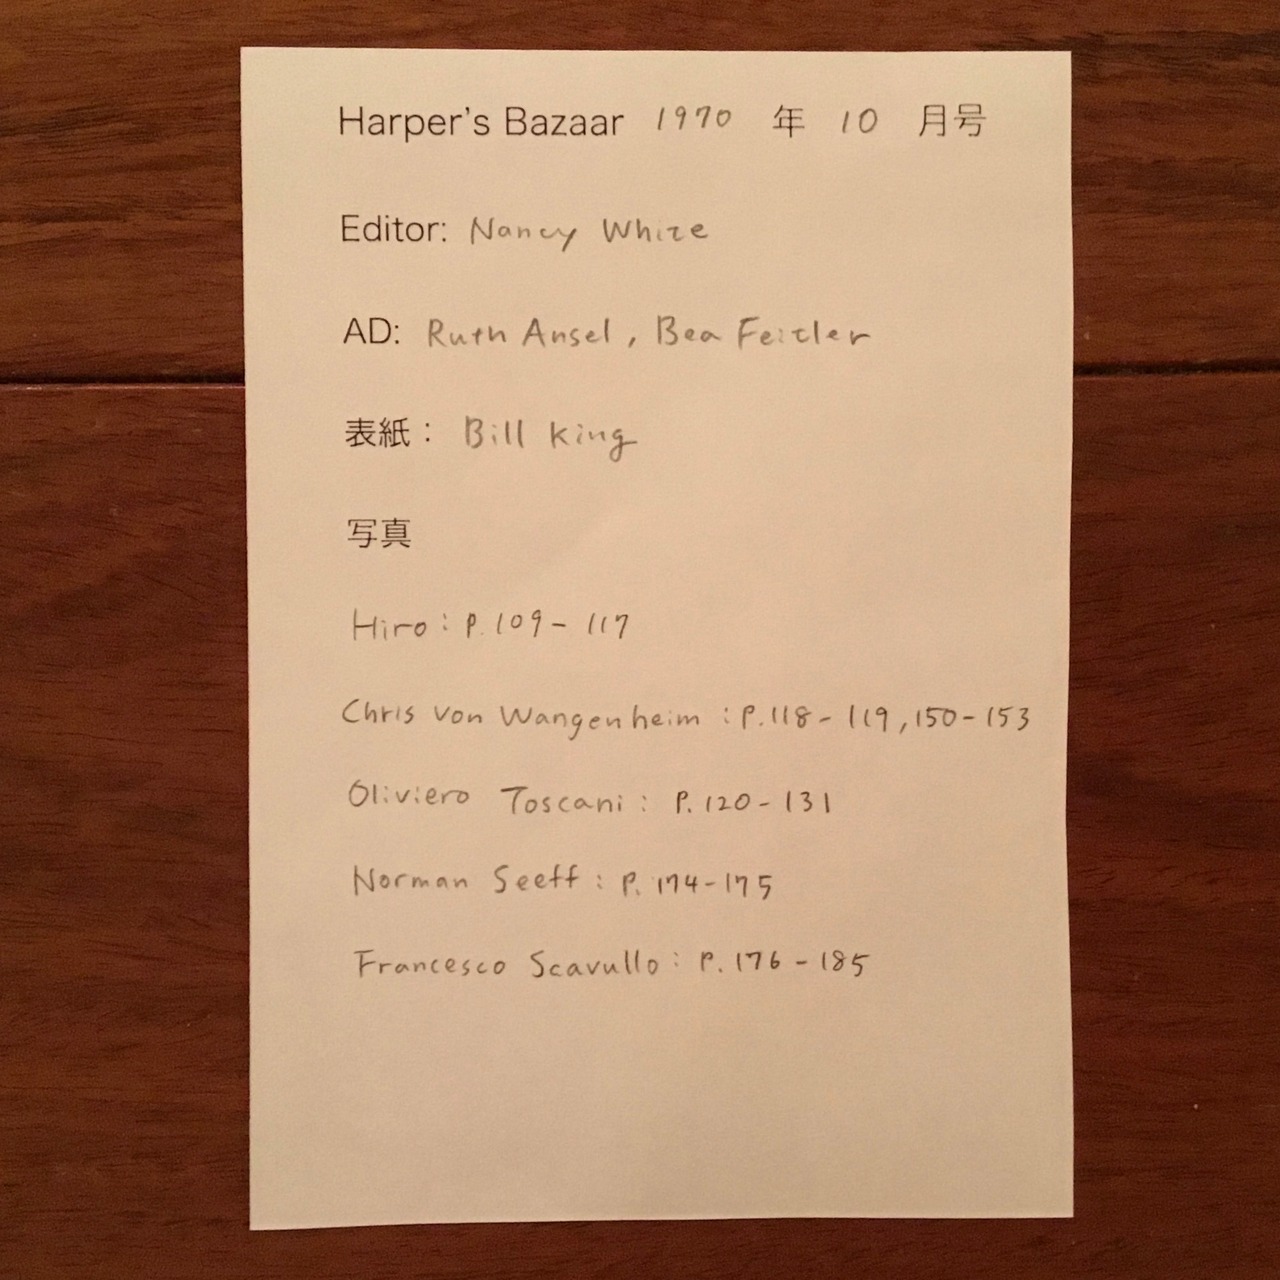 Harper's Bazaar 1970 年 10 月号
Editor: Nancy White
AD: Ruth Ansel, Bea Feitler
表紙： Bill King
写真
Hiro: P.109-117
Chris von Wangenheim: P.118-119,150-153
Oliviero Toscani: P.120-131
Norman Seeff: P.174-175
Francesco Scavullo: P.176-185